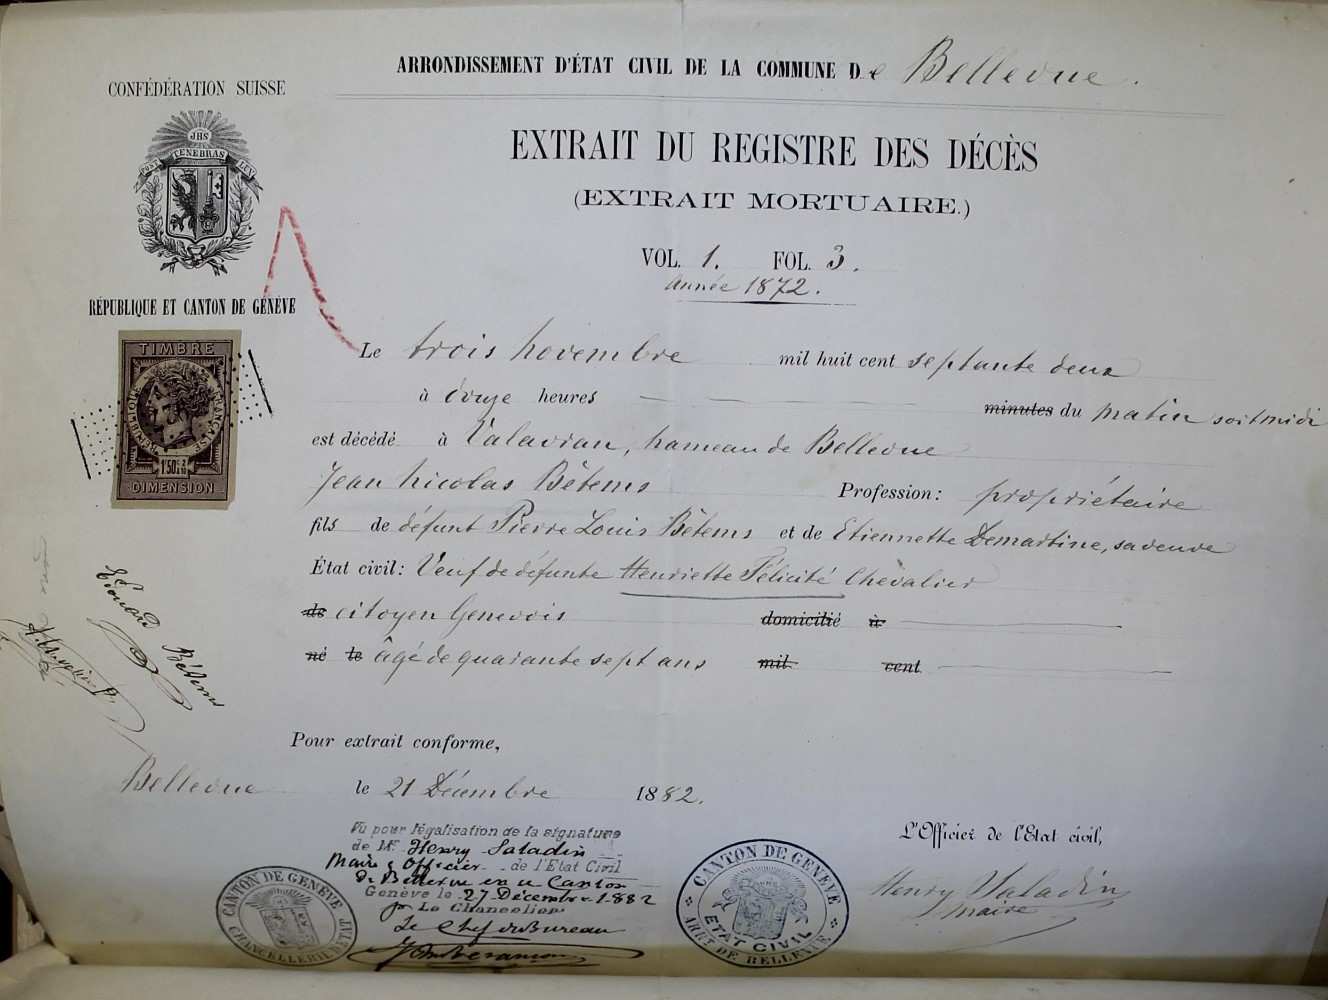 ARRONDISSEMENT D'ÉTAT CIVIL DE LA COMMUNE De Bellevue.
CONFÉDÉRATION SUISSE
JHS
POST TENEBRAS LUX
EXTRAIT DU REGISTRE DES DÉCÈS
(EXTRAIT MORTUAIRE.)
VOL. 1. FOL. 3.
année 1872.
RÉPUBLIQUE ET CANTON DE GENÈVE
TIMBRE
RÉPUBLIQUE FRANÇAISE
1F50
DIMENSION
Le trois novembre mil huit cent septante deux
à douze heures minutes du matin soit midi
est décédé à Valavran, hameau de Bellevue
Jean Nicolas Bétems Profession: propriétaire
fils de défunt Pierre Louis Bétems et de Etiennette Demartine, sa veuve
État civil: Veuf de défunte Henriette Félicité Chevalier
de citoyen Genevois domicilié à
né le âgé de quarante sept ans mil cent
Edouard Bétems
Pour extrait conforme,
Bellevue le 21 Décembre 1882.
Vu pour légalisation de la signature
de Mr Henry Saladin
Maire & Officier de l'Etat Civil
de Bellevue en ce Canton
Genève le 27 Décembre 1882
pr Le Chancelier
Le Chef du Bureau
L'Officier de l'Etat civil,
Henry Saladin
Maire
CANTON DE GENÈVE
CHANCELLERIE D'ÉTAT
CANTON DE GENÈVE
ETAT CIVIL
ARRT DE BELLEVUE